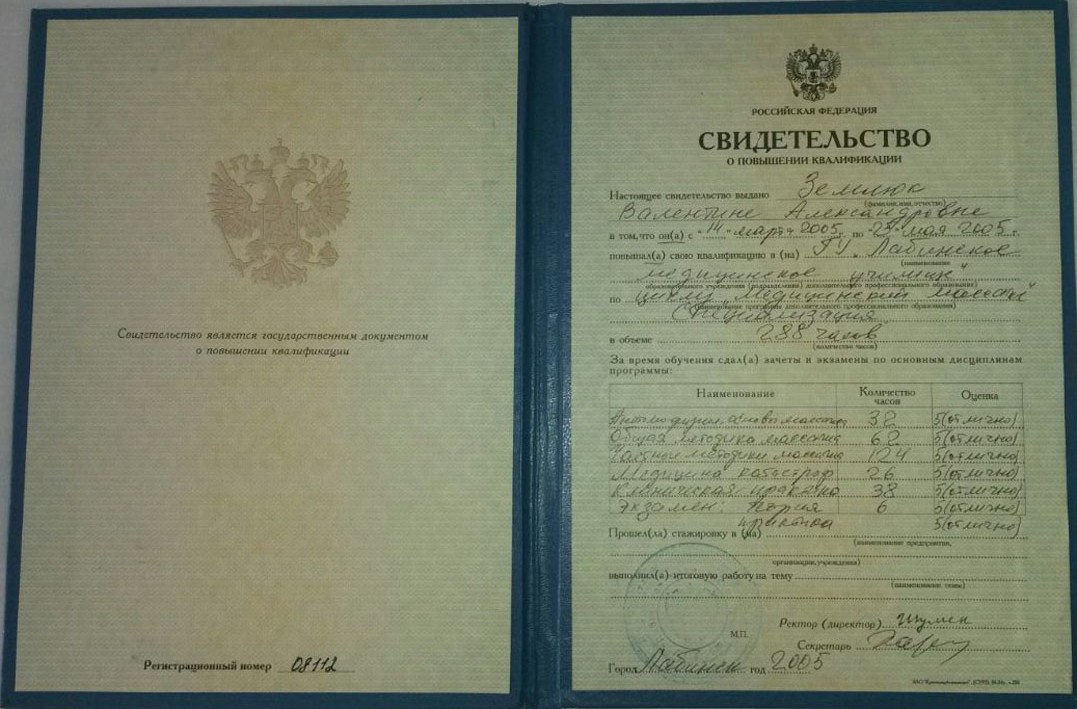 Свидетельство является государственным документом
о повышении квалификации
Регистрационный номер 08112
РОССИЙСКАЯ ФЕДЕРАЦИЯ
СВИДЕТЕЛЬСТВО
О ПОВЫШЕНИИ КВАЛИФИКАЦИИ
Настоящее свидетельство выдано Землюк
(фамилия, имя, отчество)
Валентине Александровне
в том, что он(а) с "14" марта 2005 по "28" мая 2005 г.
повышал(а) свою квалификацию в (на) ГУ "Лабинское
(наименование
медицинское училище"
образовательного учреждения (подразделения) дополнительного профессионального образования)
по циклу "Медицинский массаж"
(наименование программы дополнительного профессионального образования)
Специализация
в объеме 288 часов
(количество часов)
За время обучения сдал(а) зачеты и экзамены по основным дисциплинам
программы:
Наименование Количество часов Оценка
основы массажа 32 5(отлично)
Общая методика массажа 62 5(отлично)
Частные методики массажа 124 5(отлично)
Медицина катастроф 26 5(отлично)
Клиническая практика 38 5(отлично)
Экзамен: Теория 6 5(отлично)
практика 5(отлично)
Прошел(ла) стажировку в (на)
(наименование предприятия,
организации, учреждения)
выполнил(а) итоговую работу на тему
(наименование темы)
Ректор (директор)
М.П.
Секретарь
Город Лабинск год 2005